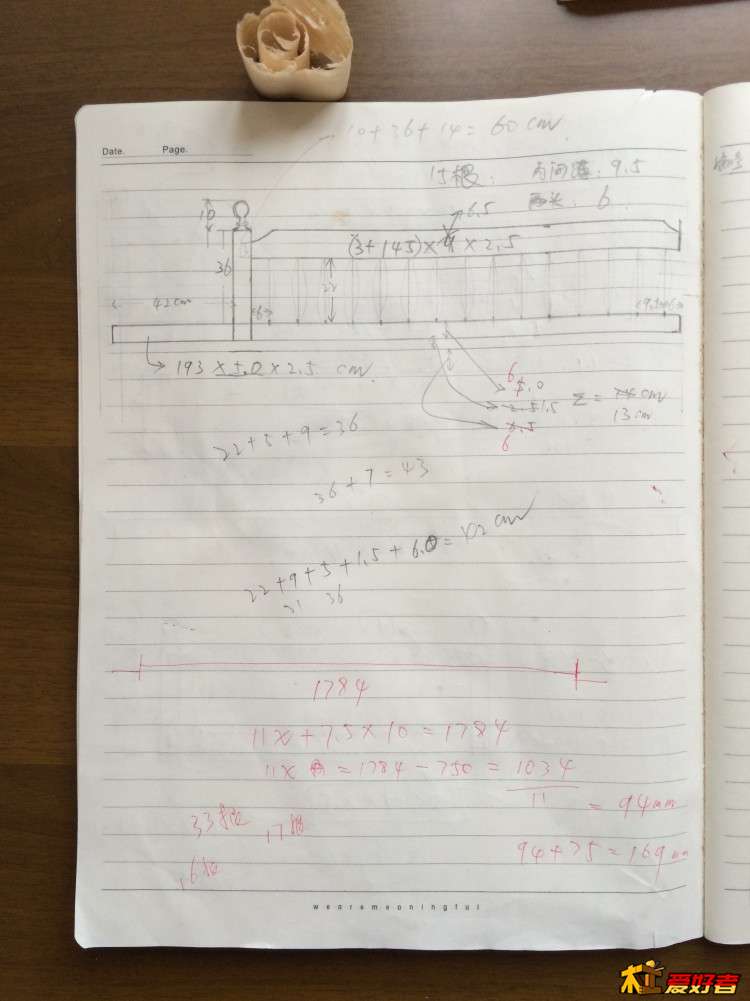 Date. Page.
10+36+14=60cm.
15根: 内间距: 9.5
两头: 6
10
6.5
(3+145)×4×2.5
36
22
42cm
6
9.5
6
193×5.0×2.5 cm.
6
5.0
1.5
Z=
cm
13cm
6
22+5+9=36
36+7=43
22+9+5+1.5+6.0= cm
31 36
1784
11x+7.5×10=1784
11x =1784-750=1034
11
=94mm
94+75=169mm
33根
17根
16根
wearemeaningful
木工爱好者